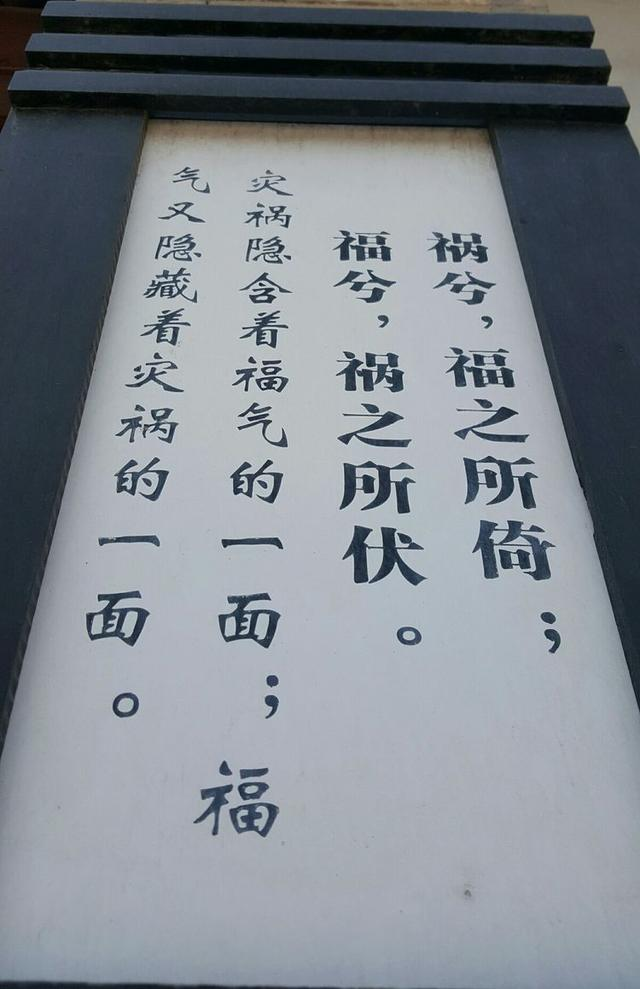 祸兮，福之所倚；
福兮，祸之所伏。
灾祸隐含着福气的一面；福
气又隐藏着灾祸的一面。